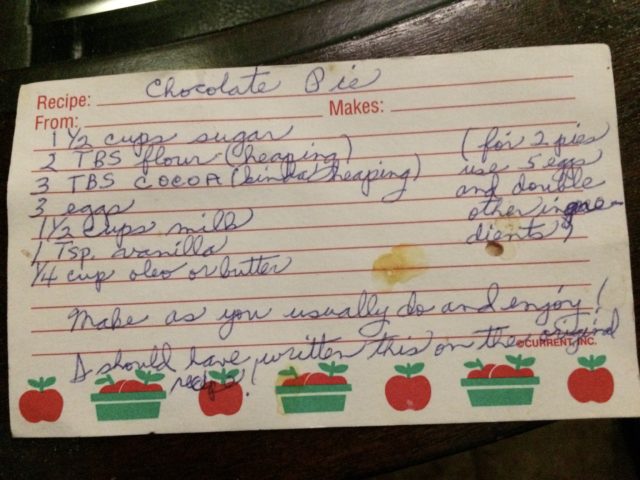 Recipe: Chocolate Pie
From: Makes:
1 1/2 cups sugar
2 TBS flour (heaping)
3 TBS COCOA (kinda heaping)
3 eggs
1 1/2 cups milk
1 Tsp. vanilla
1/4 cup oleo or butter
(for 2 pies
use 5 eggs
and double
other ingre-
dients)
Make as you usually do and enjoy!
I should have written this on the original
recipe!
©CURRENT, INC.